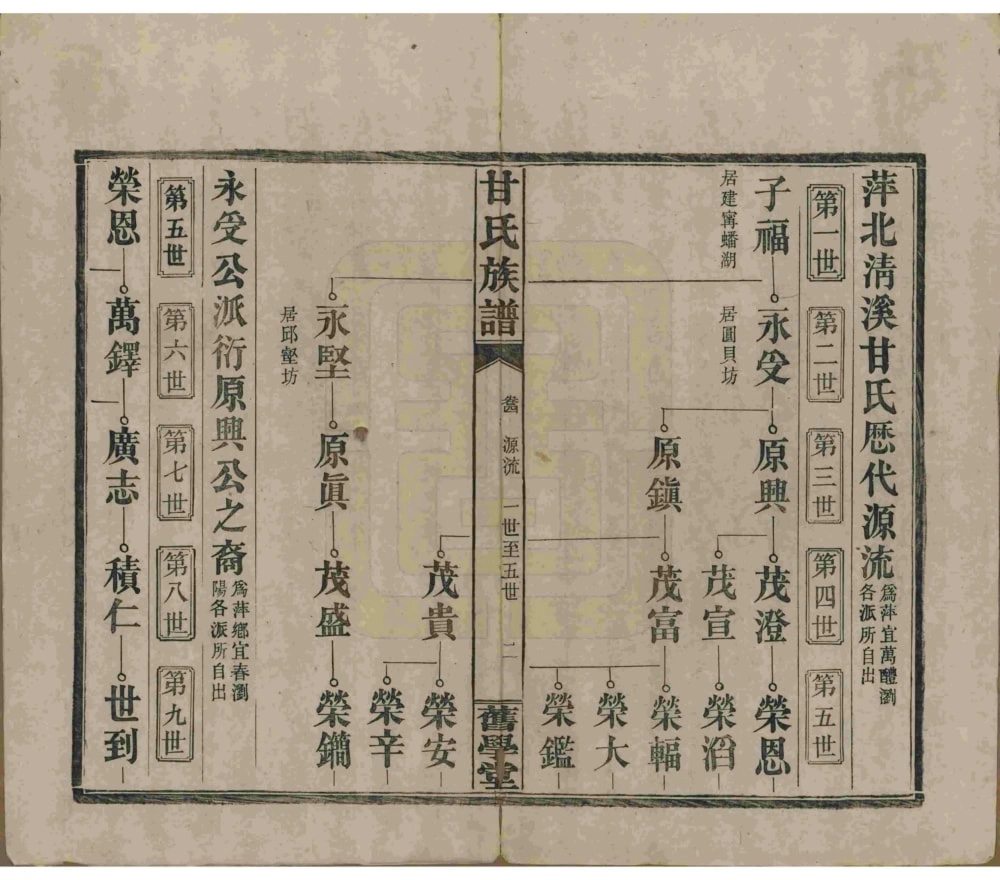 萍北清溪甘氏歷代源流爲萍宜萬醴瀏各派所自出
第一世
第二世
第三世
第四世
第五世
子福
居建寗蟠湖
永受
居圓貝坊
原興
茂澄
榮恩
茂宣
榮滔
原鎭
茂富
榮輻
榮大
榮鑑
茂貴
榮安
榮辛
永堅
居邱壑坊
原眞
茂盛
榮鐗
甘氏族譜
源流
一世至五世
二
舊學堂
永受公派衍原興公之裔爲萍鄉宜春瀏陽各派所自出
第五世
第六世
第七世
第八世
第九世
榮恩
萬鐸
廣志
積仁
世到